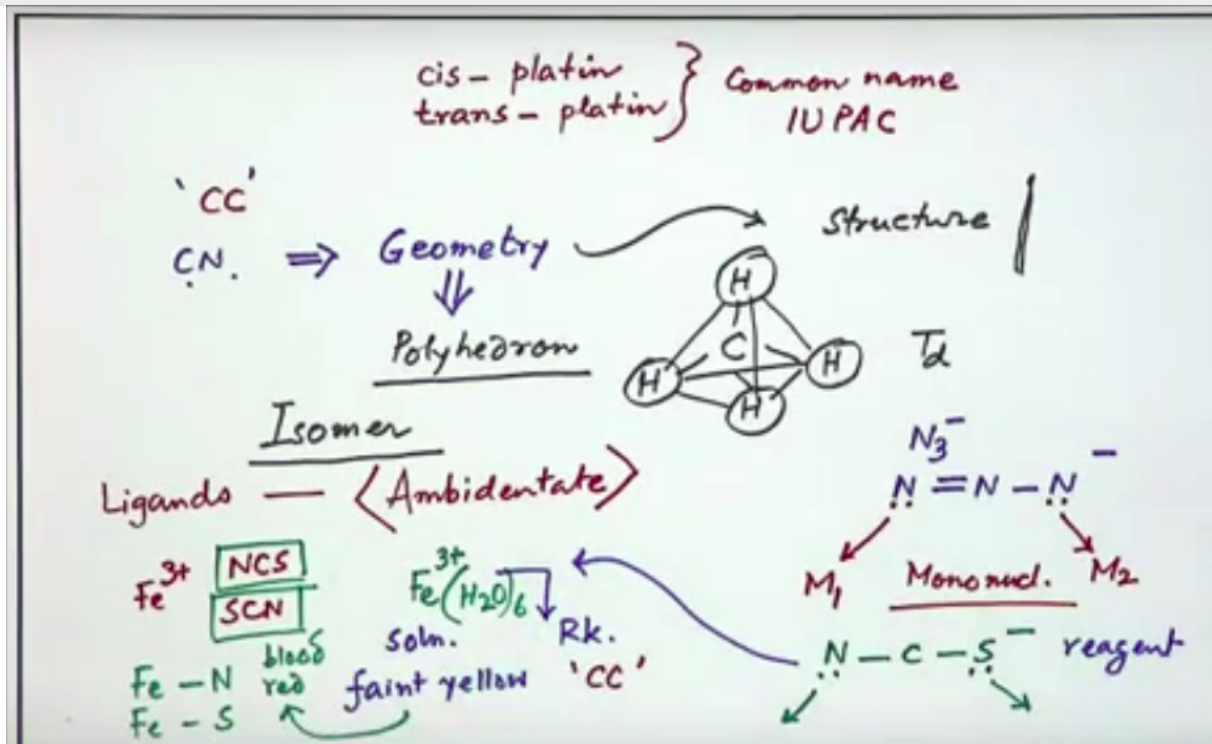 cis - platin
trans - platin
Common name
IUPAC
'CC'
CN. ⇒ Geometry
Structure
Polyhedron
H
C
H
H
H
Td
Isomer
Ligands — <Ambidentate>
N3⁻
N = N - N⁻
M1
Mononucl.
M2
Fe³⁺
NCS
SCN
Fe³⁺(H2O)6
soln.
Rk.
faint yellow
'CC'
blood
red
Fe - N
Fe - S
N - C - S⁻
reagent